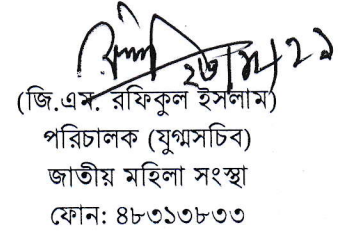 (জি.এম. রফিকুল ইসলাম)
পরিচালক (যুগ্মসচিব)
জাতীয় মহিলা সংস্থা
ফোন: ৪৮৩১৩৮৩৩